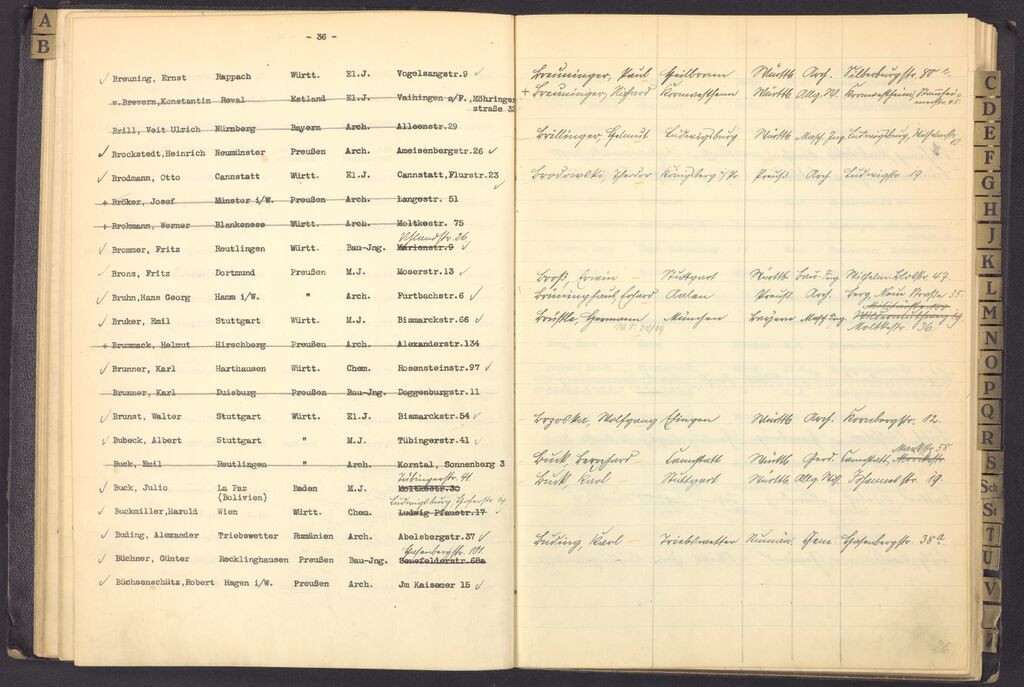 A
B
- 36 -
Breuning, Ernst Rappach Württ. El.J. Vogelsangstr.9
v.Brevern,Konstantin Reval Estland El.J. Vaihingen a/F.,Möhringer
straße 3
Brill, Veit Ulrich Nürnberg Bayern Arch. Alleenstr.29
Brockstedt,Heinrich Neumünster Preußen Arch. Ameisenbergstr.26
Brodmann, Otto Cannstatt Württ. El.J. Cannstatt,Flurstr.23
+ Bröker, Josef Münster i/W. Preußen Arch. Langestr. 51
+ Brokmann, Werner Blankenese Württ. Arch. Moltkestr. 75
Uhlandstr. 26
Brommer, Fritz Reutlingen Württ. Bau-Jng. Marienstr.9
Brons, Fritz Dortmund Preußen M.J. Moserstr.13
Bruhn,Hans Georg Hamm i/W. " Arch. Furtbachstr.6
Bruker, Emil Stuttgart Württ. M.J. Bismarckstr.66
+ Brummack, Helmut Hirschberg Preußen Arch. Alexanderstr.134
Brunner, Karl Harthausen Württ. Chem. Rosensteinstr.97
Brunner, Karl Duisburg Preußen Bau-Jng. Doggenburgstr.11
Brunst, Walter Stuttgart Württ. El.J. Bismarckstr.54
Bubeck, Albert Stuttgart " M.J. Tübingerstr.41
Buck, Emil Reutlingen " Arch. Korntal, Sonnenberg 3
Tübingerstr. 41
Buck, Julio La Paz Baden M.J. Moltkestr.30
(Bolivien)
Ludwigsburg, Hoferstr. 14
Buckmiller,Harold Wien Württ. Chem. Ludwig Pfaustr.17
Buding, Alexander Triebswetter Rumänien Arch. Abelsbergstr.37
Hasenbergstr. 101
Büchner, Günter Recklinghausen Preußen Bau-Jng. Senefelderstr.68a
Büchsenschütz,Robert Hagen i/W. Preußen Arch. Jm Kaisemer 15
Breuninger, Paul Heilbronn Württb Arch. Silberburgstr. 80a
+ Breuninger, Richard Kornwestheim Württb Allg.W. Kornwestheim,
Brillinger, Helmut Ludwigsburg Württb Masch.Ing. Ludwigsburg, Wilhelmstr.
10
Brodowski, Theodor Königsberg i/Pr Preuß Arch Ludwigstr. 19
Broß, Erwin Stuttgart Württb Bau-Ing. Wilhelm-Blosstr. 47
Brüninghaus, Erhard Aalen Preuß. Arch. Berg, Neue Straße 35
Brüstle, Hermann München Bayern Masch.Ing.
Moltkestr. 36
Brzoska, Wolfgang Ehingen Württb Arch. Kornbergstr. 12
Marktstr. 58
Buck, Bernhard Cannstatt Württb Cannstatt,
Buck, Karl Stuttgart Württb Johannesstr. 19
Buding, Karl Triebswetter Rumän. Chem. Hasenbergstr. 38a
26
C
D
E
F
G
H
J
K
L
M
N
O
P
Q
R
S
Sch
St
T
U
V